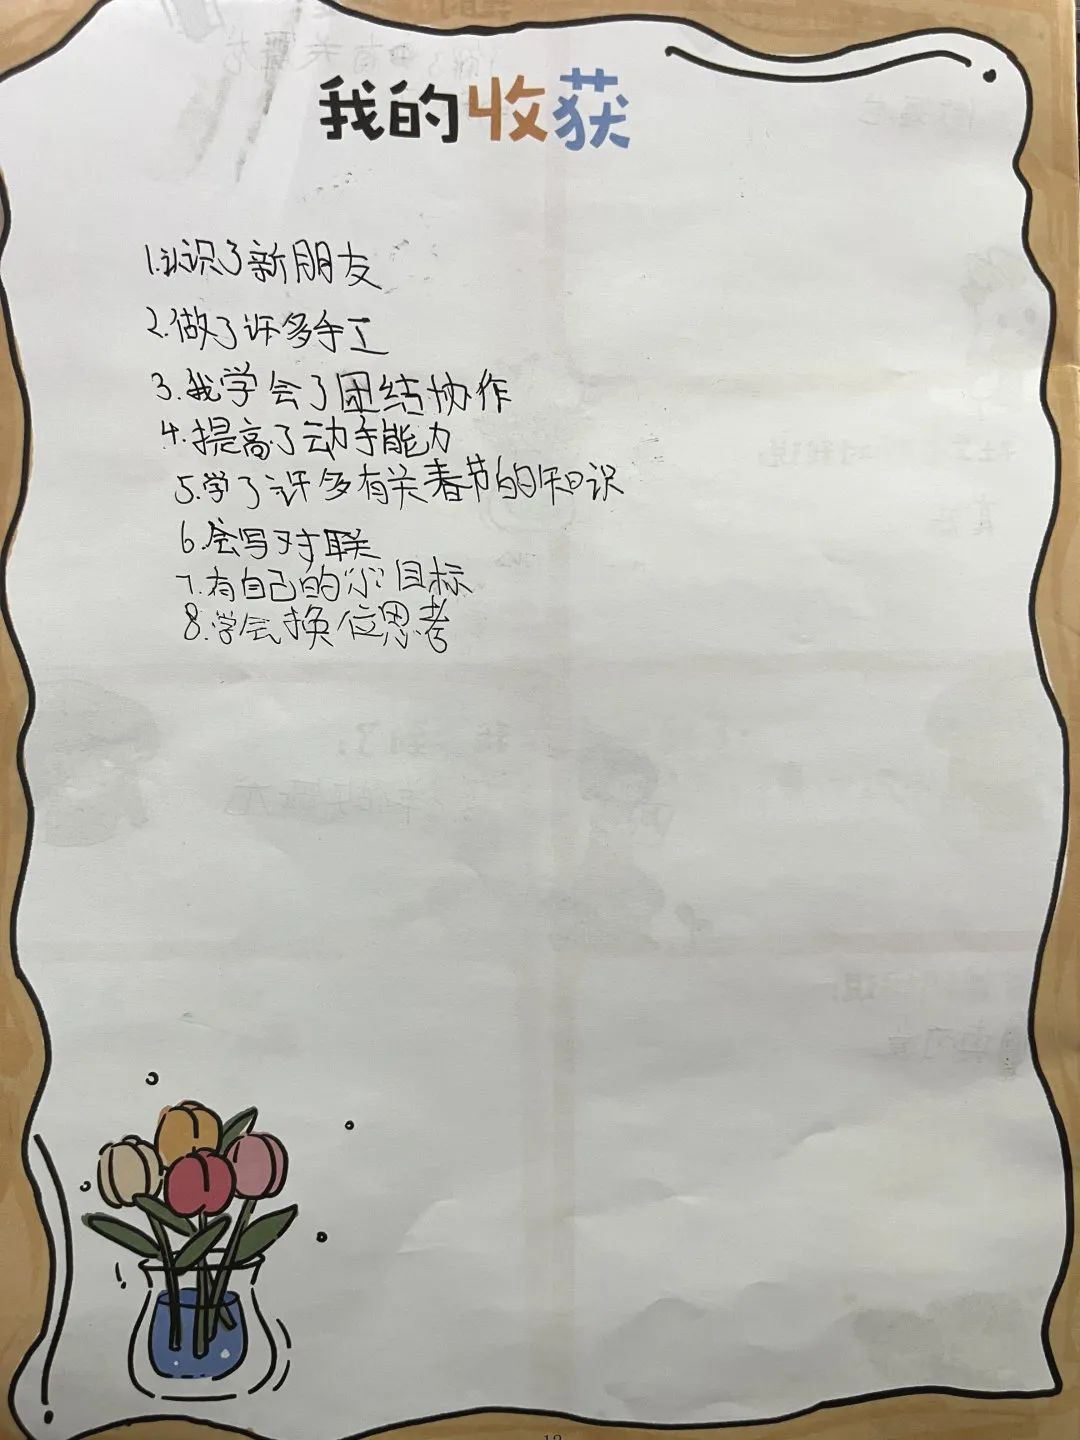 我的收获
1.认识了新朋友
2.做了许多手工
3.我学会了团结协作
4.提高了动手能力
5.学了许多有关春节的知识
6.会写对联
7.有自己的小目标
8.学会换位思考
12